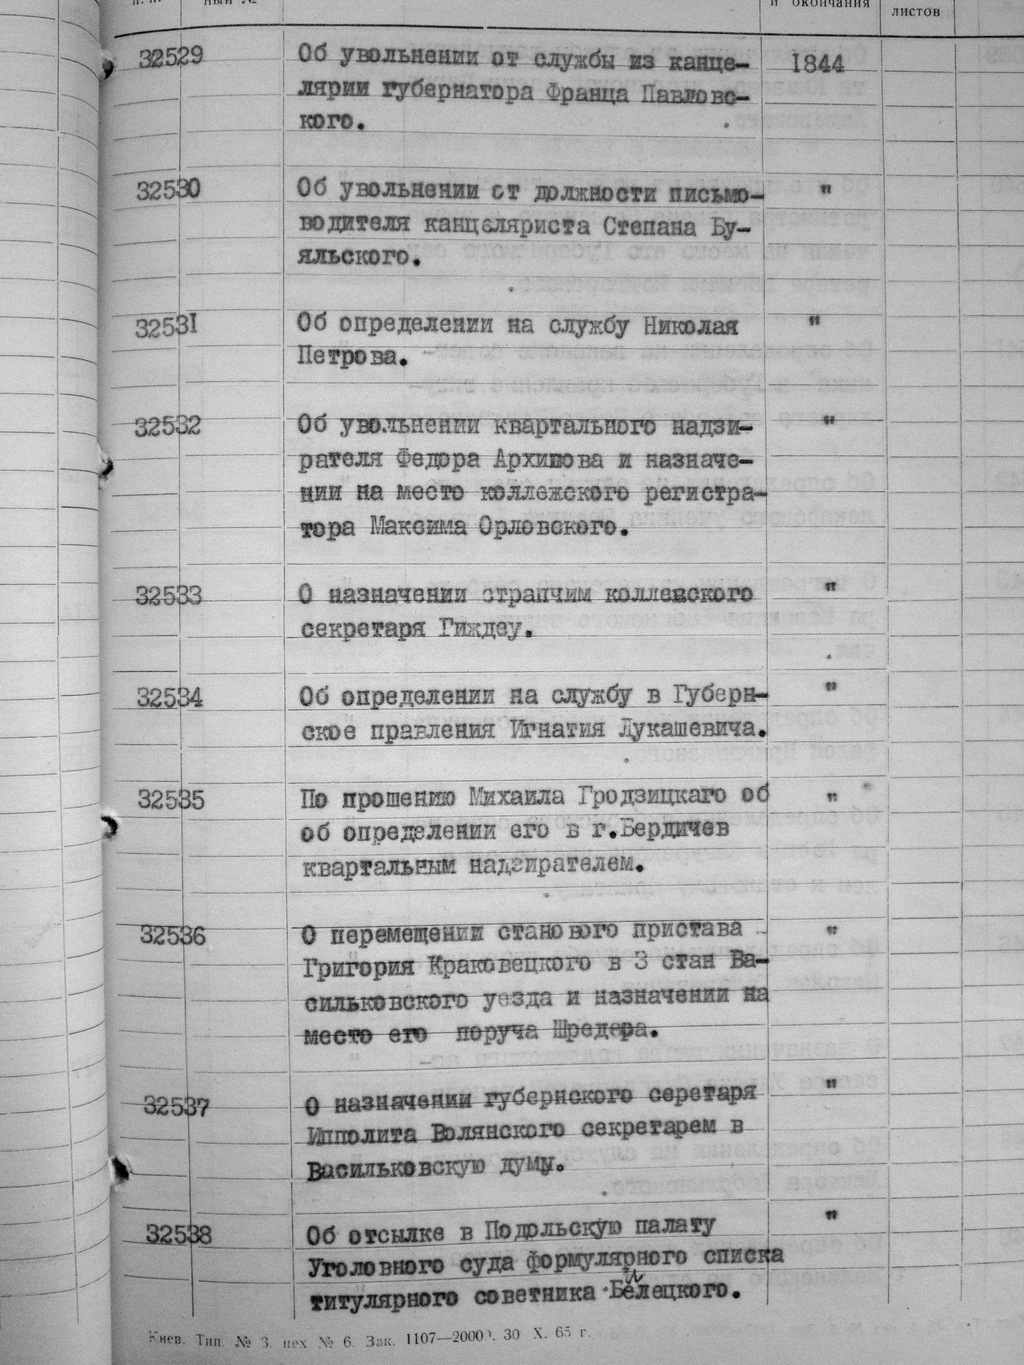 и окончания
листов
32529 Об увольнении от службы из канце- 1844
лярии губернатора Франца Павловс-
кого.
32530 Об увольнении от должности письмо- "
водителя канцеляриста Степана Бу-
яльского.
32531 Об определении на службу Николая "
Петрова.
32532 Об увольнении квартального надзи- "
рателя Федора Архипова и назначе-
нии на место коллежского регистра-
тора Максима Орловского.
32533 О назначении страпчим коллежского "
секретаря Гиждеу.
32534 Об определении на службу в Губерн- "
ское правления Игнатия Лукашевича.
32535 По прошению Михаила Гродзицкаго об "
об определении его в г.Бердичев
квартальным надзирателем.
32536 О перемещении станового пристава "
Григория Краковецкого в 3 стан Ва-
сильковского уезда и назначении на
место его поруча Шредера.
32537 О назначении губернского серетаря "
Ипполита Волянского секретарем в
Васильковскую думу.
32538 Об отсылке в Подольскую палату "
Уголовного суда формулярного списка
титулярного советника Белецкого.
Киев. Тип. № 3. цех № 6. Зак. 1107—20000. 30 X. 65 г.